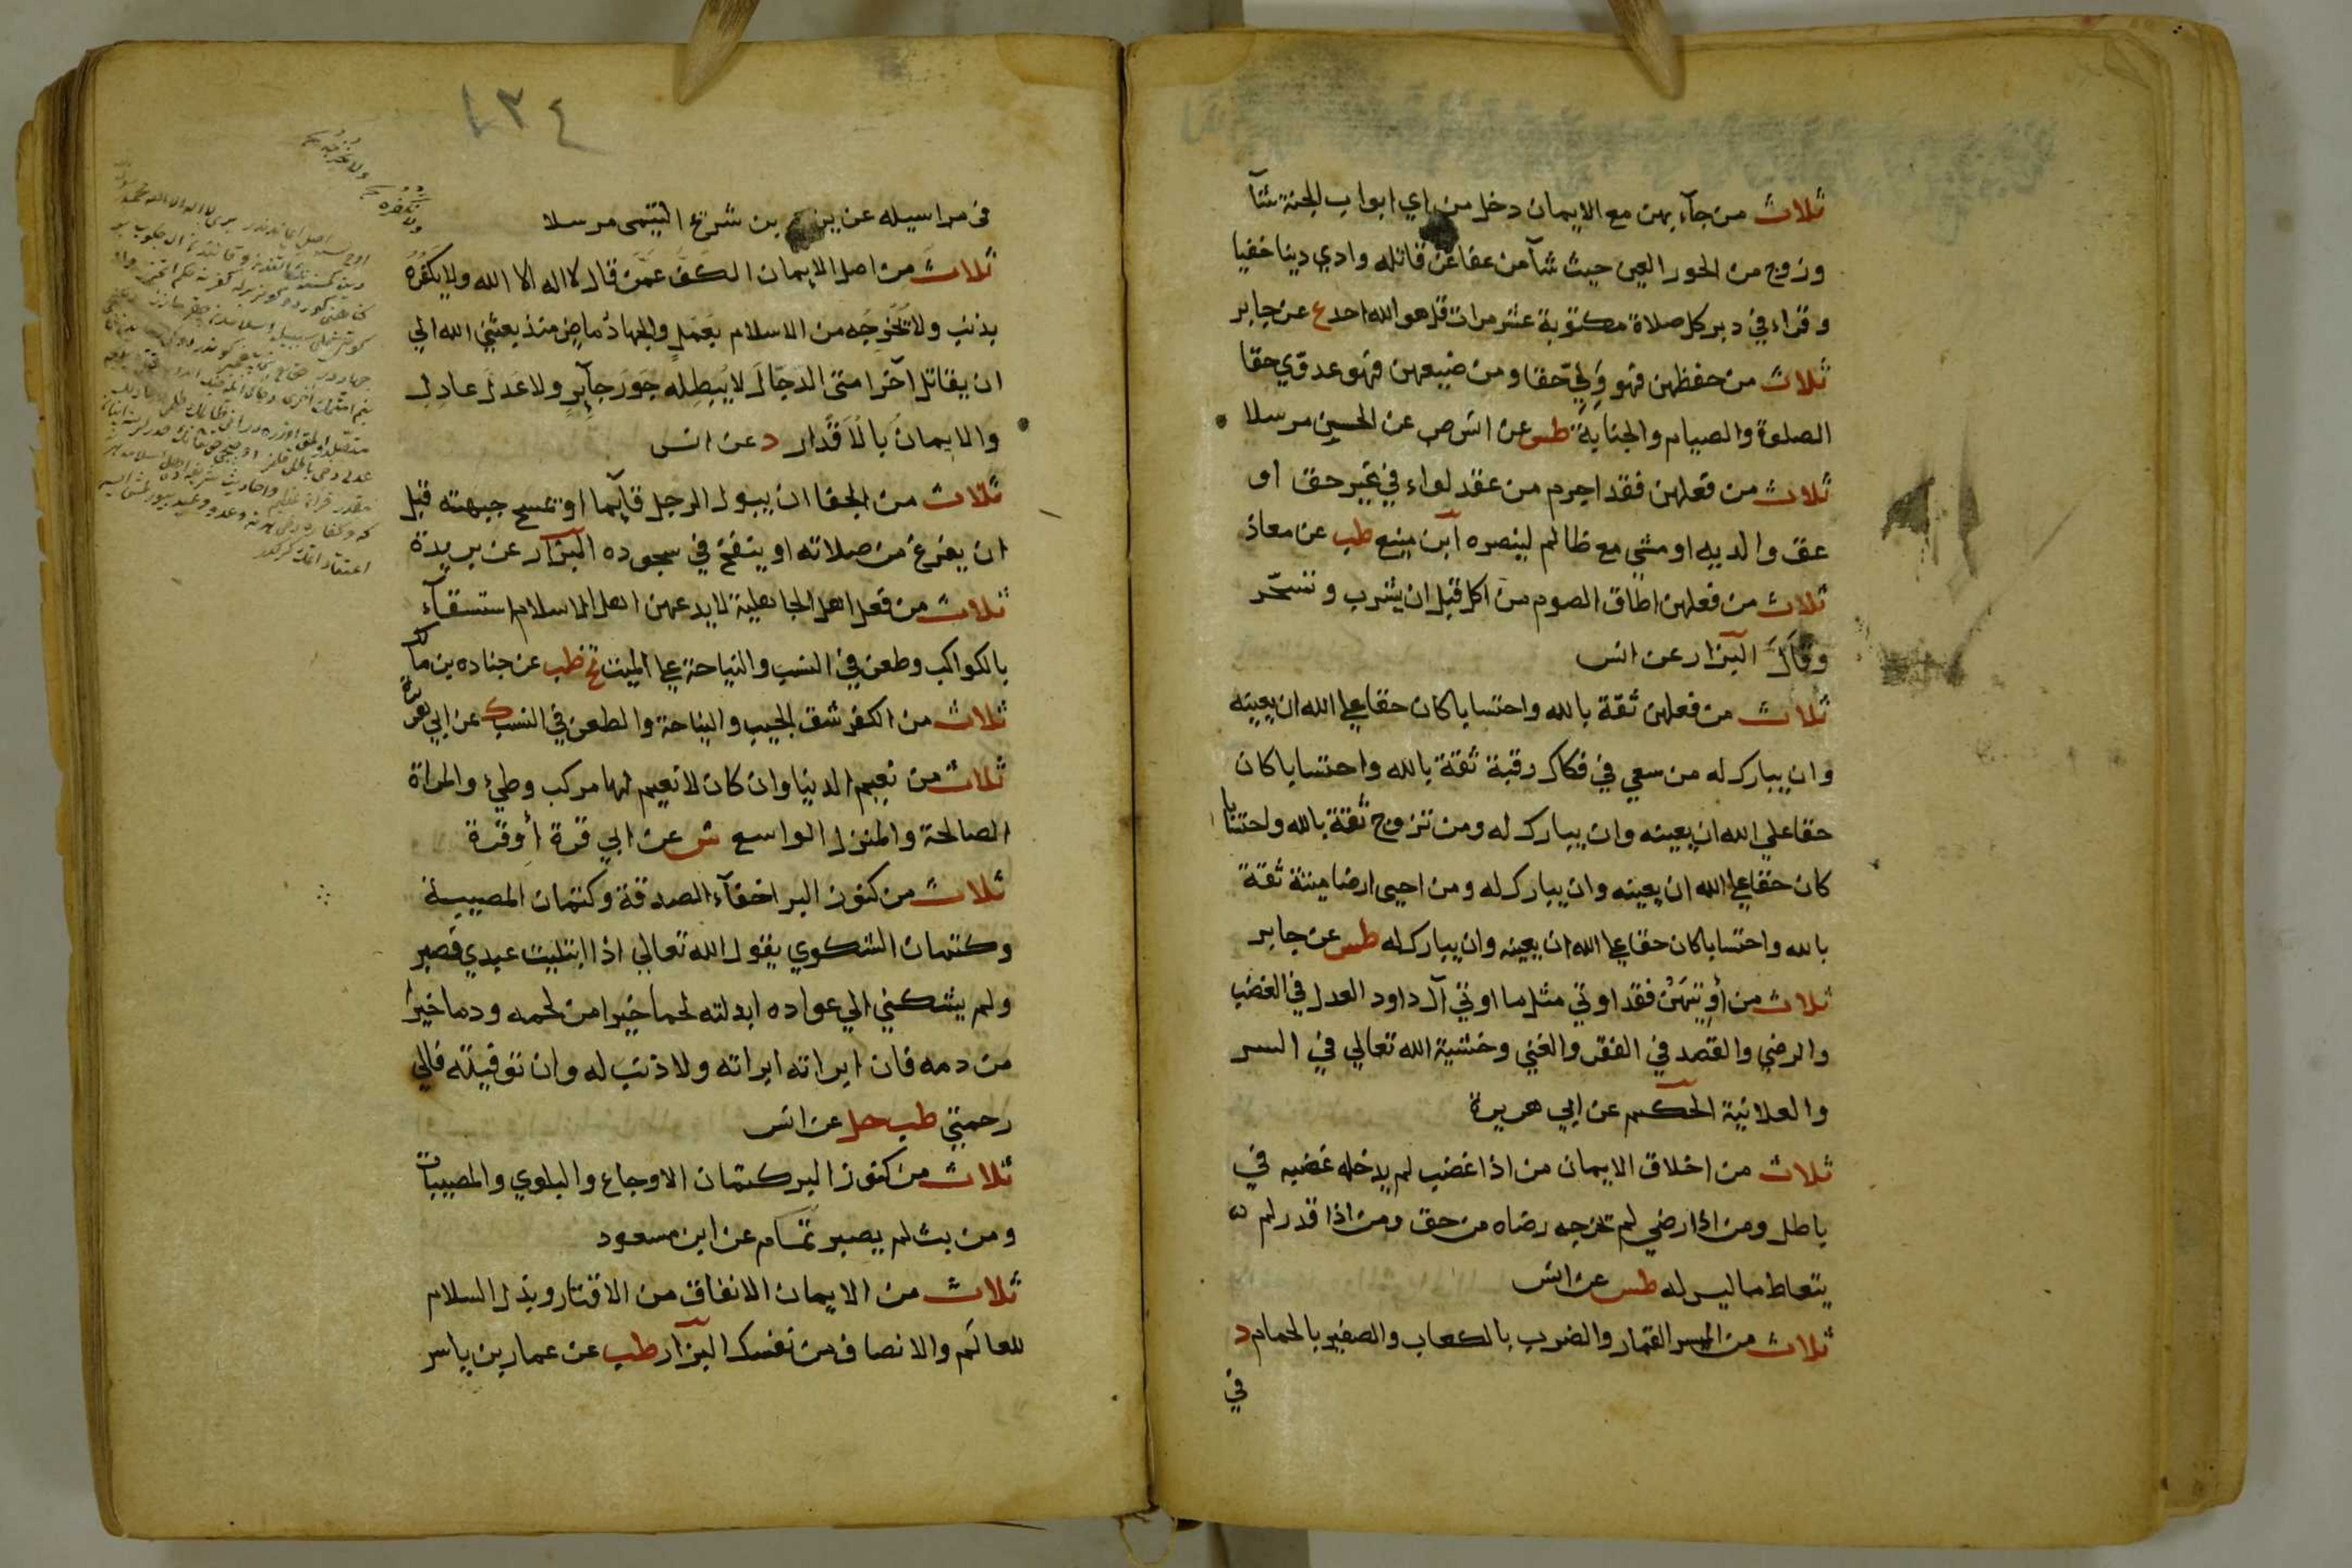 ثلاث من جآء بهن مع الايمان دخل من اي ابواب الجنة شآ
وزوج من الحور العين حيث شآ من عفا عن قاتله وادي دينا خفيا
وقراء في دبر كل صلاة مكتوبة عشر مرات قل هو الله احد ع عن جابر
ثلاث من حفظهن فهو وَلِيّ حقا ومن ضيعهن فهو عدوّي حقا
الصلوة والصيام والجنابة طس عن انس ص عن الحسن مرسلا
ثلاث من فعلهن فقد اجرم من عقد لواء في غير حق او
عق والديه او مشي مع ظالم لينصره ابن منيع طب عن معاذ
ثلاث من فعلهن اطاق الصوم من اكل قبل ان يشرب وتسحّر
وقَالَ البزار عن انس
ثلاث من فعلهن ثقة بالله واحتسابا كان حقا علي الله ان يعينه
وان يبارك له من سعي في فكاك رقبة ثقة بالله واحتسابا كان
حقا علي الله ان يعينه وان يبارك له ومن تزوج ثقة بالله واحتسابا
كان حقا علي الله ان يعينه وان يبارك له ومن احيي ارضا ميتة ثقة
بالله واحتسابا كان حقا علي الله ان يعينه وان يبارك له طس عن جابر
ثلاث من أُوتيَهُنّ فقد اوتي مثل ما اوتي آل داود العدل في الغضب
والرضي والقصد في الفقر والغني وخشية الله تعالي في السر
والعلانية الحكيم عن ابي هريرة
ثلاث من اخلاق الايمان من اذا غضب لم يدخله غضبه في
باطل ومن اذا رضي لم تخرجه رضاه من حق ومن اذا قدر لم
يتعاط ما ليس له طس عن انس
ثلاث من الميسر القمار والضرب بالكعاب والصفير بالحمام د
في
١٣٤
في مراسيله عن يزيد بن شريح التيمى مرسلا
ثلاث من اصل الايمان الكفَّ عمّن قال لا اله الا الله ولا يكفّره
بذنب ولا تُخْرِجَه من الاسلام بعَمَلٍ والجهادُ ماضٍ منذ بعثني الله الي
ان يقاتل آخر امتى الدّجّالَ لا يُبطِله جَورَ جآيرٍ ولا عَدلَ عادِلٍ
والايمانُ بالاَقْدار د عن انس
ثلاث من الجفا ان يبول الرجل قآيما او تمسح جبهته قبل
ان يفرغ من صلاته او ينفخ في سجوده البزّار عن بريدة
ثلاث من فعل اهل الجاهلية لا يدعهن اهل الاسلام استسقآء
بالكواكب وطعن في النسب والنياحة علي الميت تخ طب عن جناده بن مالك
ثلاث من الكفر شق الجيب والنياحة والطعن في النسب ك عن ابي هريرة
ثلاث من نعيم الدنيا وان كان لا نعيم لها مركب وطئ والمراة
الصالحة والمنزل الواسع ش عن ابي قرة أو قرة
ثلاث من كنوز البر اخفآء الصدقة وكتمان المصيبة
وكتمان الشكوي يقول الله تعالي اذا ابتليت عبدي فصبر
ولم يشكني الي عواده ابدلته لحما خيرا من لحمه ودما خيرا
من دمه فان ابراته ابراته ولا ذنب له وان توفيته فالي
رحمتي طب حل عن انس
ثلاث من كنوز البر كتمان الاوجاع والبلوي والمصيبات
ومن بث لم يصبر تمّام عن ابن مسعود
ثلاث من الايمان الانفاق من الاقتار وبذل السلام
للعالَم والانصاف من نفسك البزّار طب عن عمار بن ياسر